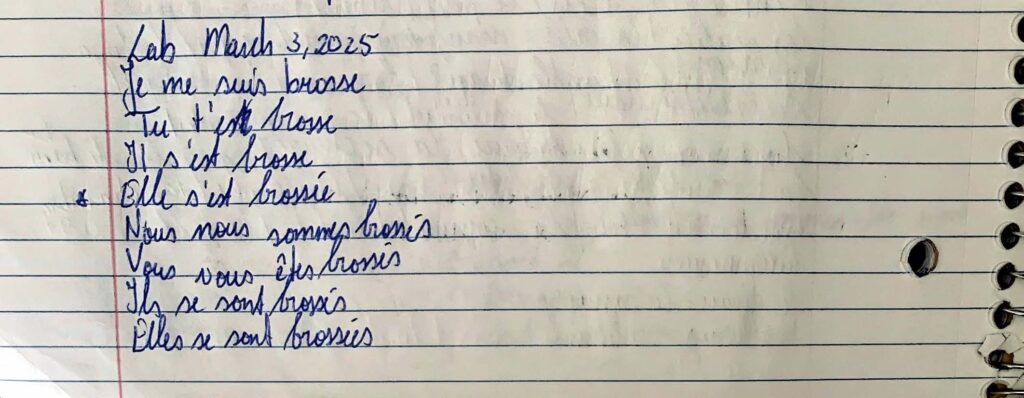 Lab March 3, 2025
Je me suis brosse
Tu t'es brosse
Il s'est brosse
* Elle s'est brossée
Nous nous sommes brossés
Vous vous êtes brossés
Ils se sont brossés
Elles se sont brossées